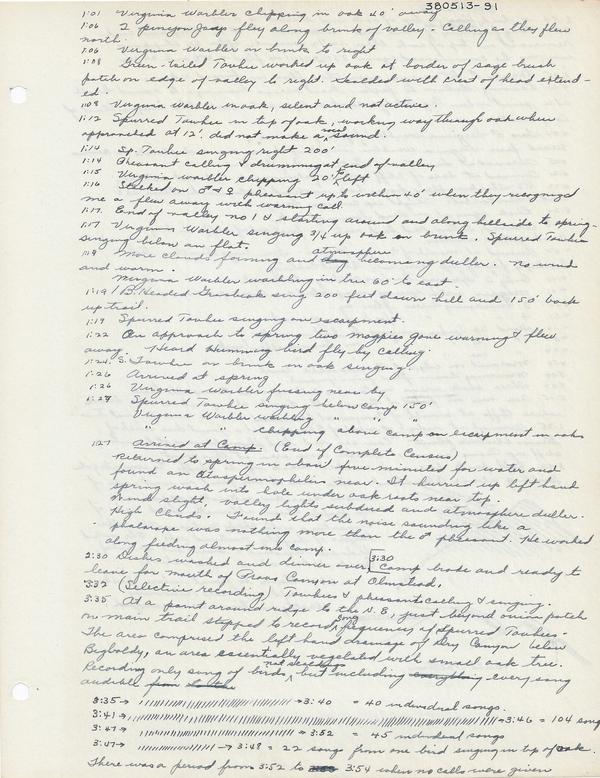 380513-91
1:01 Virginia Warbler chipping in oak 40' away
1:06 2 pinyon Jays flew along brink of valley. Calling as they flew
north.
1:06 Virginia warbler on brink to right
1:08 Green-tailed Towhee worked up oak at border of sage brush
patch on edge of valley to right. Scolded with crest of head extend-
ed.
1:08 Virginia warbler in oak, silent and not active.
1:12 Spurred Towhee in top of oak, working way through oak when
approached at 12'. did not make a sound.
1:14 Sp. Towhee singing right 200'
1:14 Pheasant calling & drumming at end of valley
1:15 Virginia warbler chipping 20' to left
1:16 Stalked on ♂ & ♀ pheasant up to within 40' when they recognized
me & flew away with warning call.
1:17 End of valley no 1 & starting around and along hillside to spring.
1:17 Virginia Warbler singing 3/4 up oak on brink. Spurred Towhee
singing below on flat.
1:19 More clouds forming and atmosphere becoming duller. No wind
and warm.
Virginia Warbler warbling in tree 60' to east.
1:19 B. Headed Grosbeak sing 200 feet down hill and 150' back
up trail.
1:19 Spurred Towhee singing on escarpment.
1:22 On approach to spring two magpies gave warning & flew
away. Heard Humming bird fly by calling.
1:24 S. Towhee on brink in oak singing.
1:26 Arrived at spring
1:26 Virginia warbler fussing near by
1:27 Spurred Towhee singing below camp 150'
Virginia Warbler warbling " "
" " chipping above camp on escarpment in oaks
1:27 Arrived at Camp. (End of Complete Census)
Returned to spring in about five minutes for water and
found an Citospermophilus near. It hurried up left hand
spring wash into hole under oak roots near top.
Wind slight, valley lights subdued and atmosphere duller.
High Clouds. Found that the noise sounding like a
phalarope was nothing more than the ♂ pheasant. He worked
along feeding almost into camp.
2:30 Dishes washed and dinner over. 3:30 Camp broke and ready to
leave for mouth of Provo Canyon at Olmstead.
3:32 (Selective recording) Towhees & pheasant calling & singing.
3:35 At a point around ridge to the N.E, just beyond onion patch
on main trail stopped to record song frequency of Spurred Towhees.
The area comprised the left hand drainage of Dry Canyon below
Bigbaldy, an area essentially vegetated with small oak tree.
Recording only song of birds, not including every song
audible
3:35 → → 3:40 = 40 individual songs.
3:41 → → 3:46 = 104 song
3:47 → → 3:52 = 45 individual songs
3:47 → → 3:48 = 22 songs from one bird singing in top of oak.
There was a period from 3:52 to 3:54 when no calls were given